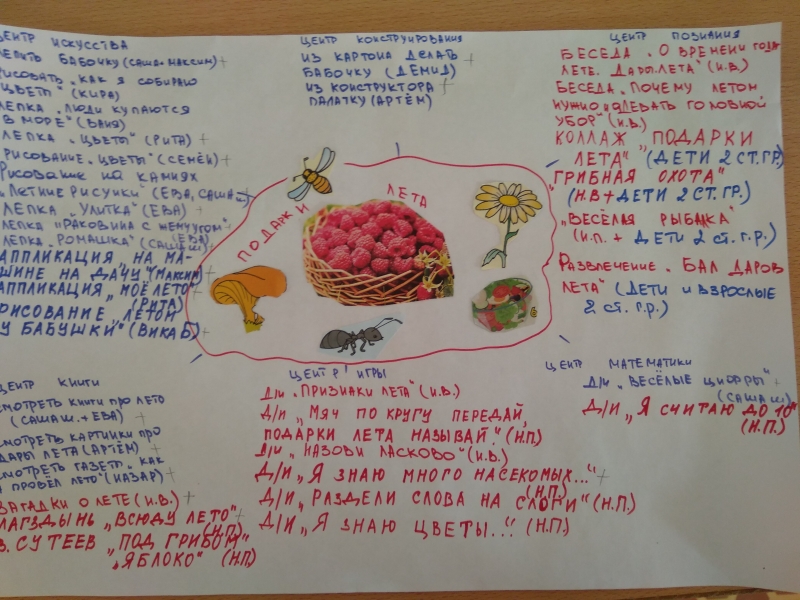 ЦЕНТР ИСКУССТВА
ЛЕПИТЬ БАБОЧКУ (САША+МАКСИМ)
РИСОВАТЬ „КАК Я СОБИРАЮ
ЦВЕТЫ" (КИРА)
ЛЕПКА „ЛЮДИ КУПАЮТСЯ
В МОРЕ" (ВАНЯ)
ЛЕПКА „ЦВЕТЫ" (РИТА)
РИСОВАНИЕ „ЦВЕТЫ" (СЕМЁН)
РИСОВАНИЕ НА КАМНЯХ
„ЛЕТНИЕ РИСУНКИ" (ЕВА, САША Ш)
ЛЕПКА „УЛИТКА" (ЕВА)
ЛЕПКА „РАКОВИНА С ЖЕМЧУГОМ"
ЕВА)
ЛЕПКА „РОМАШКА" (САША Ш)
АППЛИКАЦИЯ „НА МА-
ШИНЕ НА ДАЧУ" (МАКСИМ)
АППЛИКАЦИЯ „МОЁ ЛЕТО"
(РИТА)
РИСОВАНИЕ „ЛЕТОМ
У БАБУШКИ" (ВИКА Б)
ЦЕНТР КОНСТРУИРОВАНИЯ
ИЗ КАРТОНА ДЕЛАТЬ
БАБОЧКУ (ДЕМИД)
ИЗ КОНСТРУКТОРА
ПАЛАТКУ (АРТЁМ)
ЦЕНТР ПОЗНАНИЯ
БЕСЕДА „О ВРЕМЕНИ ГОДА
ЛЕТЕ. ДАРЫ ЛЕТА" (И.В.)
БЕСЕДА „ПОЧЕМУ ЛЕТОМ
НУЖНО ОДЕВАТЬ ГОЛОВНОЙ
УБОР" (И.В.)
КОЛЛАЖ „ПОДАРКИ
ЛЕТА" (ДЕТИ 2 СТ. ГР.)
„ГРИБНАЯ ОХОТА"
(Н.В + ДЕТИ 2 СТ. ГР.)
„ВЕСЁЛАЯ РЫБАЛКА"
(И.П. + ДЕТИ 2 СТ. Г.Р.)
РАЗВЛЕЧЕНИЕ „БАЛ ДАРОВ
ЛЕТА" (ДЕТИ И ВЗРОСЛЫЕ
2 СТ. Г.Р.)
ПОДАРКИ ЛЕТА
ЦЕНТР КНИГИ
СМОТРЕТЬ КНИГИ ПРО ЛЕТО
(САША Ш. + ЕВА)
СМОТРЕТЬ КАРТИНКИ ПРО
ДАРЫ ЛЕТА (АРТЁМ)
СМОТРЕТЬ ГАЗЕТУ „КАК
Я ПРОВЁЛ ЛЕТО" (НАЗАР)
ЗАГАДКИ О ЛЕТЕ (И.В.)
ЛАГЗДЫНЬ „ВСЮДУ ЛЕТО"
(Н.П)
В. СУТЕЕВ „ПОД ГРИБОМ"
„ЯБЛОКО" (Н.П)
ЦЕНТР ИГРЫ
Д/И „ПРИЗНАКИ ЛЕТА" (И.В.)
Д/И „МЯЧ ПО КРУГУ ПЕРЕДАЙ,
ПОДАРКИ ЛЕТА НАЗЫВАЙ." (Н.П.)
Д/И „НАЗОВИ ЛАСКОВО" (И.В.)
Д/И „Я ЗНАЮ МНОГО НАСЕКОМЫХ..."
(Н.П.)
Д/И „РАЗДЕЛИ СЛОВА НА СЛОГИ" (Н.П.)
Д/И „Я ЗНАЮ ЦВЕТЫ..." (Н.П.)
ЦЕНТР МАТЕМАТИКИ
Д/И „ВЕСЁЛЫЕ ЦИФРЫ"
(САША Ш)
Д/И „Я СЧИТАЮ ДО 10"
(Н.П.)